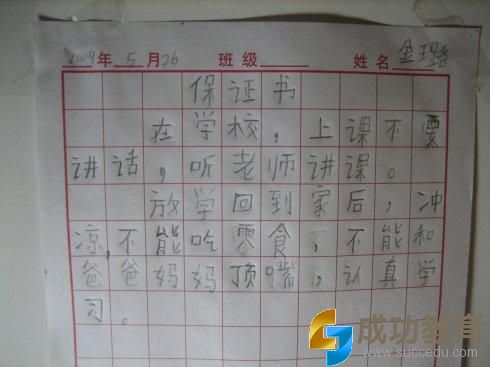 2009年 5 月26 班级 姓名 金璐
保证书
在学校，上课不要
讲话，听老师讲课。
放学回到家后，冲
凉，不能吃零食，不能和
爸爸妈妈顶嘴，认真学
习。
成功教育
www.succedu.com